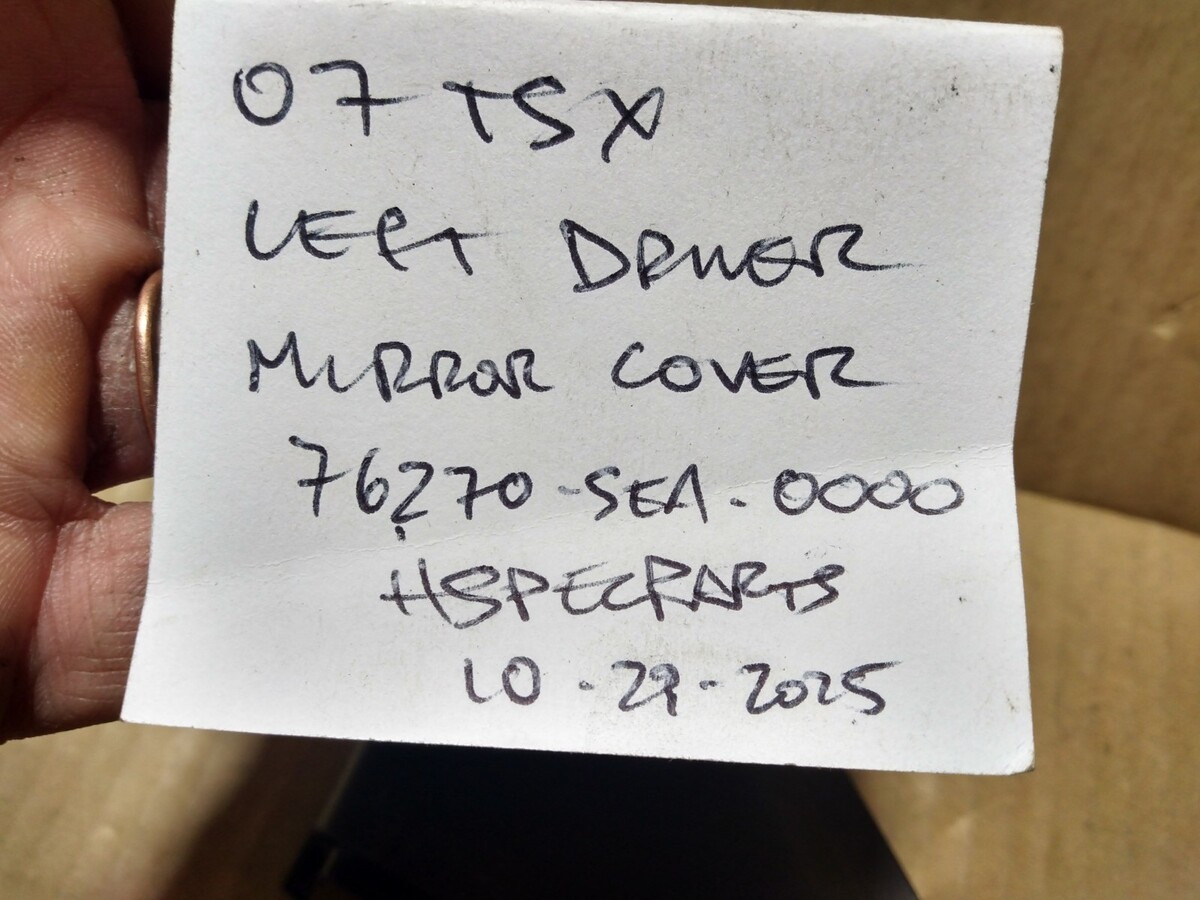 07 TSX
LEFT DRIVER
MIRROR COVER
76270-SEA-0000
HSPECPARTS
10-29-2025